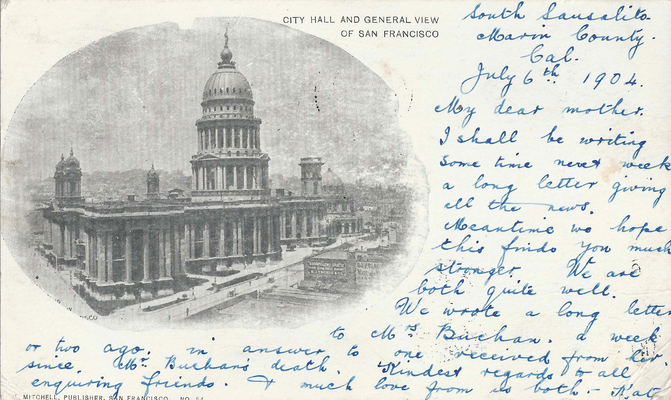 CITY HALL AND GENERAL VIEW
OF SAN FRANCISCO
South Sausalito.
Marin County.
Cal.
July 6th 1904.
My dear mother.
I shall be writing
some time next week
a long letter giving
all the news.
Meantime we hope
this finds you much
stronger. We are
both quite well.
We wrote a long letter
to Mrs Buchan. a week
or two ago. in answer to one received from her.
since. Mr. Buchan's death. Kindest regards to all
enquiring friends. & much love from us both - Kate
MITCHELL, PUBLISHER, SAN FRANCISCO. NO.